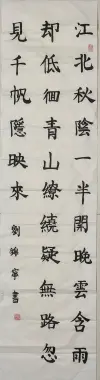 江北秋陰一半開晚雲含雨
却低徊青山繚繞疑無路忽
見千帆隱映來
劉錦寧書